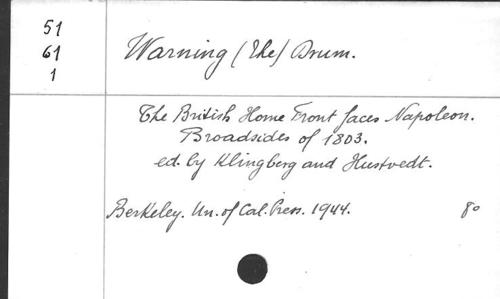 51
61
1
Warning (The) Drum.
The British Home Front faces Napoleon.
Broadsides of 1803.
ed. by Klingberg and Hustvedt.
Berkeley. Un. of Cal. Press. 1944. 8o